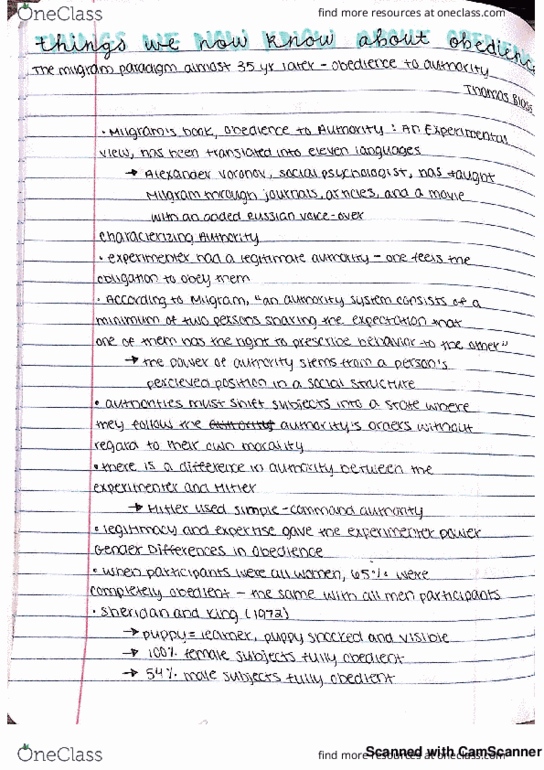 OneClass
find more resources at oneclass.com
things we now know about obedience
The Milgram paradigm almost 35 yr later - obedience to authority
Thomas Blass
• Milgram's book, Obedience to Authority : An Experimental
view, has been translated into eleven languages
→ Alexander Voronov, social psychologist, has taught
Milgram through journals, articles, and a movie
with an added Russian voice-over
Characterizing Authority
• experimenter had a legitimate authority - one feels the
obligation to obey them
• According to Milgram, "an authority system consists of a
minimum of two persons sharing the expectation that
one of them has the right to prescribe behavior to the other"
→ the power of authority stems from a person's
percieved position in a social structure
• authorities must shift subjects into a state where
they follow the authority authority's orders without
regard to their own morality
• there is a difference in authority between the
experimenter and Hitler
→ Hitler used simple-command authority
• legitimacy and expertise gave the experimenter power
Gender Differences in obedience
• when participants were all women, 65% were
completely obedient - the same with all men participants
• Sheridan and King (1972)
→ puppy = learner, puppy shocked and visible
→ 100% female subjects fully obedient
→ 54% male subjects fully obedient
OneClass
find more resources at oneclass.com
Scanned with CamScanner